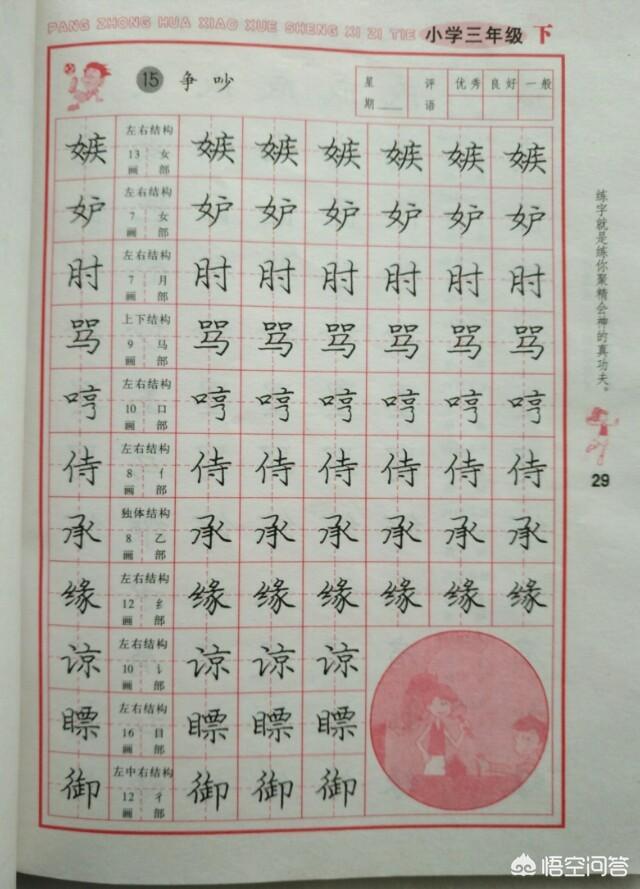 PANG ZHONG HUA XIAO XUE SHENG XI ZI TIE 小学三年级 下
15 争吵
星期 评语 优秀 良好 一般
嫉 左右结构 13画 女部 嫉 嫉 嫉 嫉 嫉 嫉
妒 左右结构 7画 女部 妒 妒 妒 妒 妒 妒
肘 左右结构 7画 月部 肘 肘 肘 肘 肘 肘
骂 上下结构 9画 马部 骂 骂 骂 骂 骂 骂
哼 左右结构 10画 口部 哼 哼 哼 哼 哼 哼
侍 左右结构 8画 亻部 侍 侍 侍 侍 侍 侍
承 独体结构 8画 乙部 承 承 承 承 承 承
缘 左右结构 12画 纟部 缘 缘 缘 缘 缘 缘
谅 左右结构 10画 讠部 谅 谅 谅
瞟 左右结构 16画 目部 瞟 瞟 瞟
御 左中右结构 12画 彳部 御 御 御
练字就是练你聚精会神的真功夫。
29
悟空问答